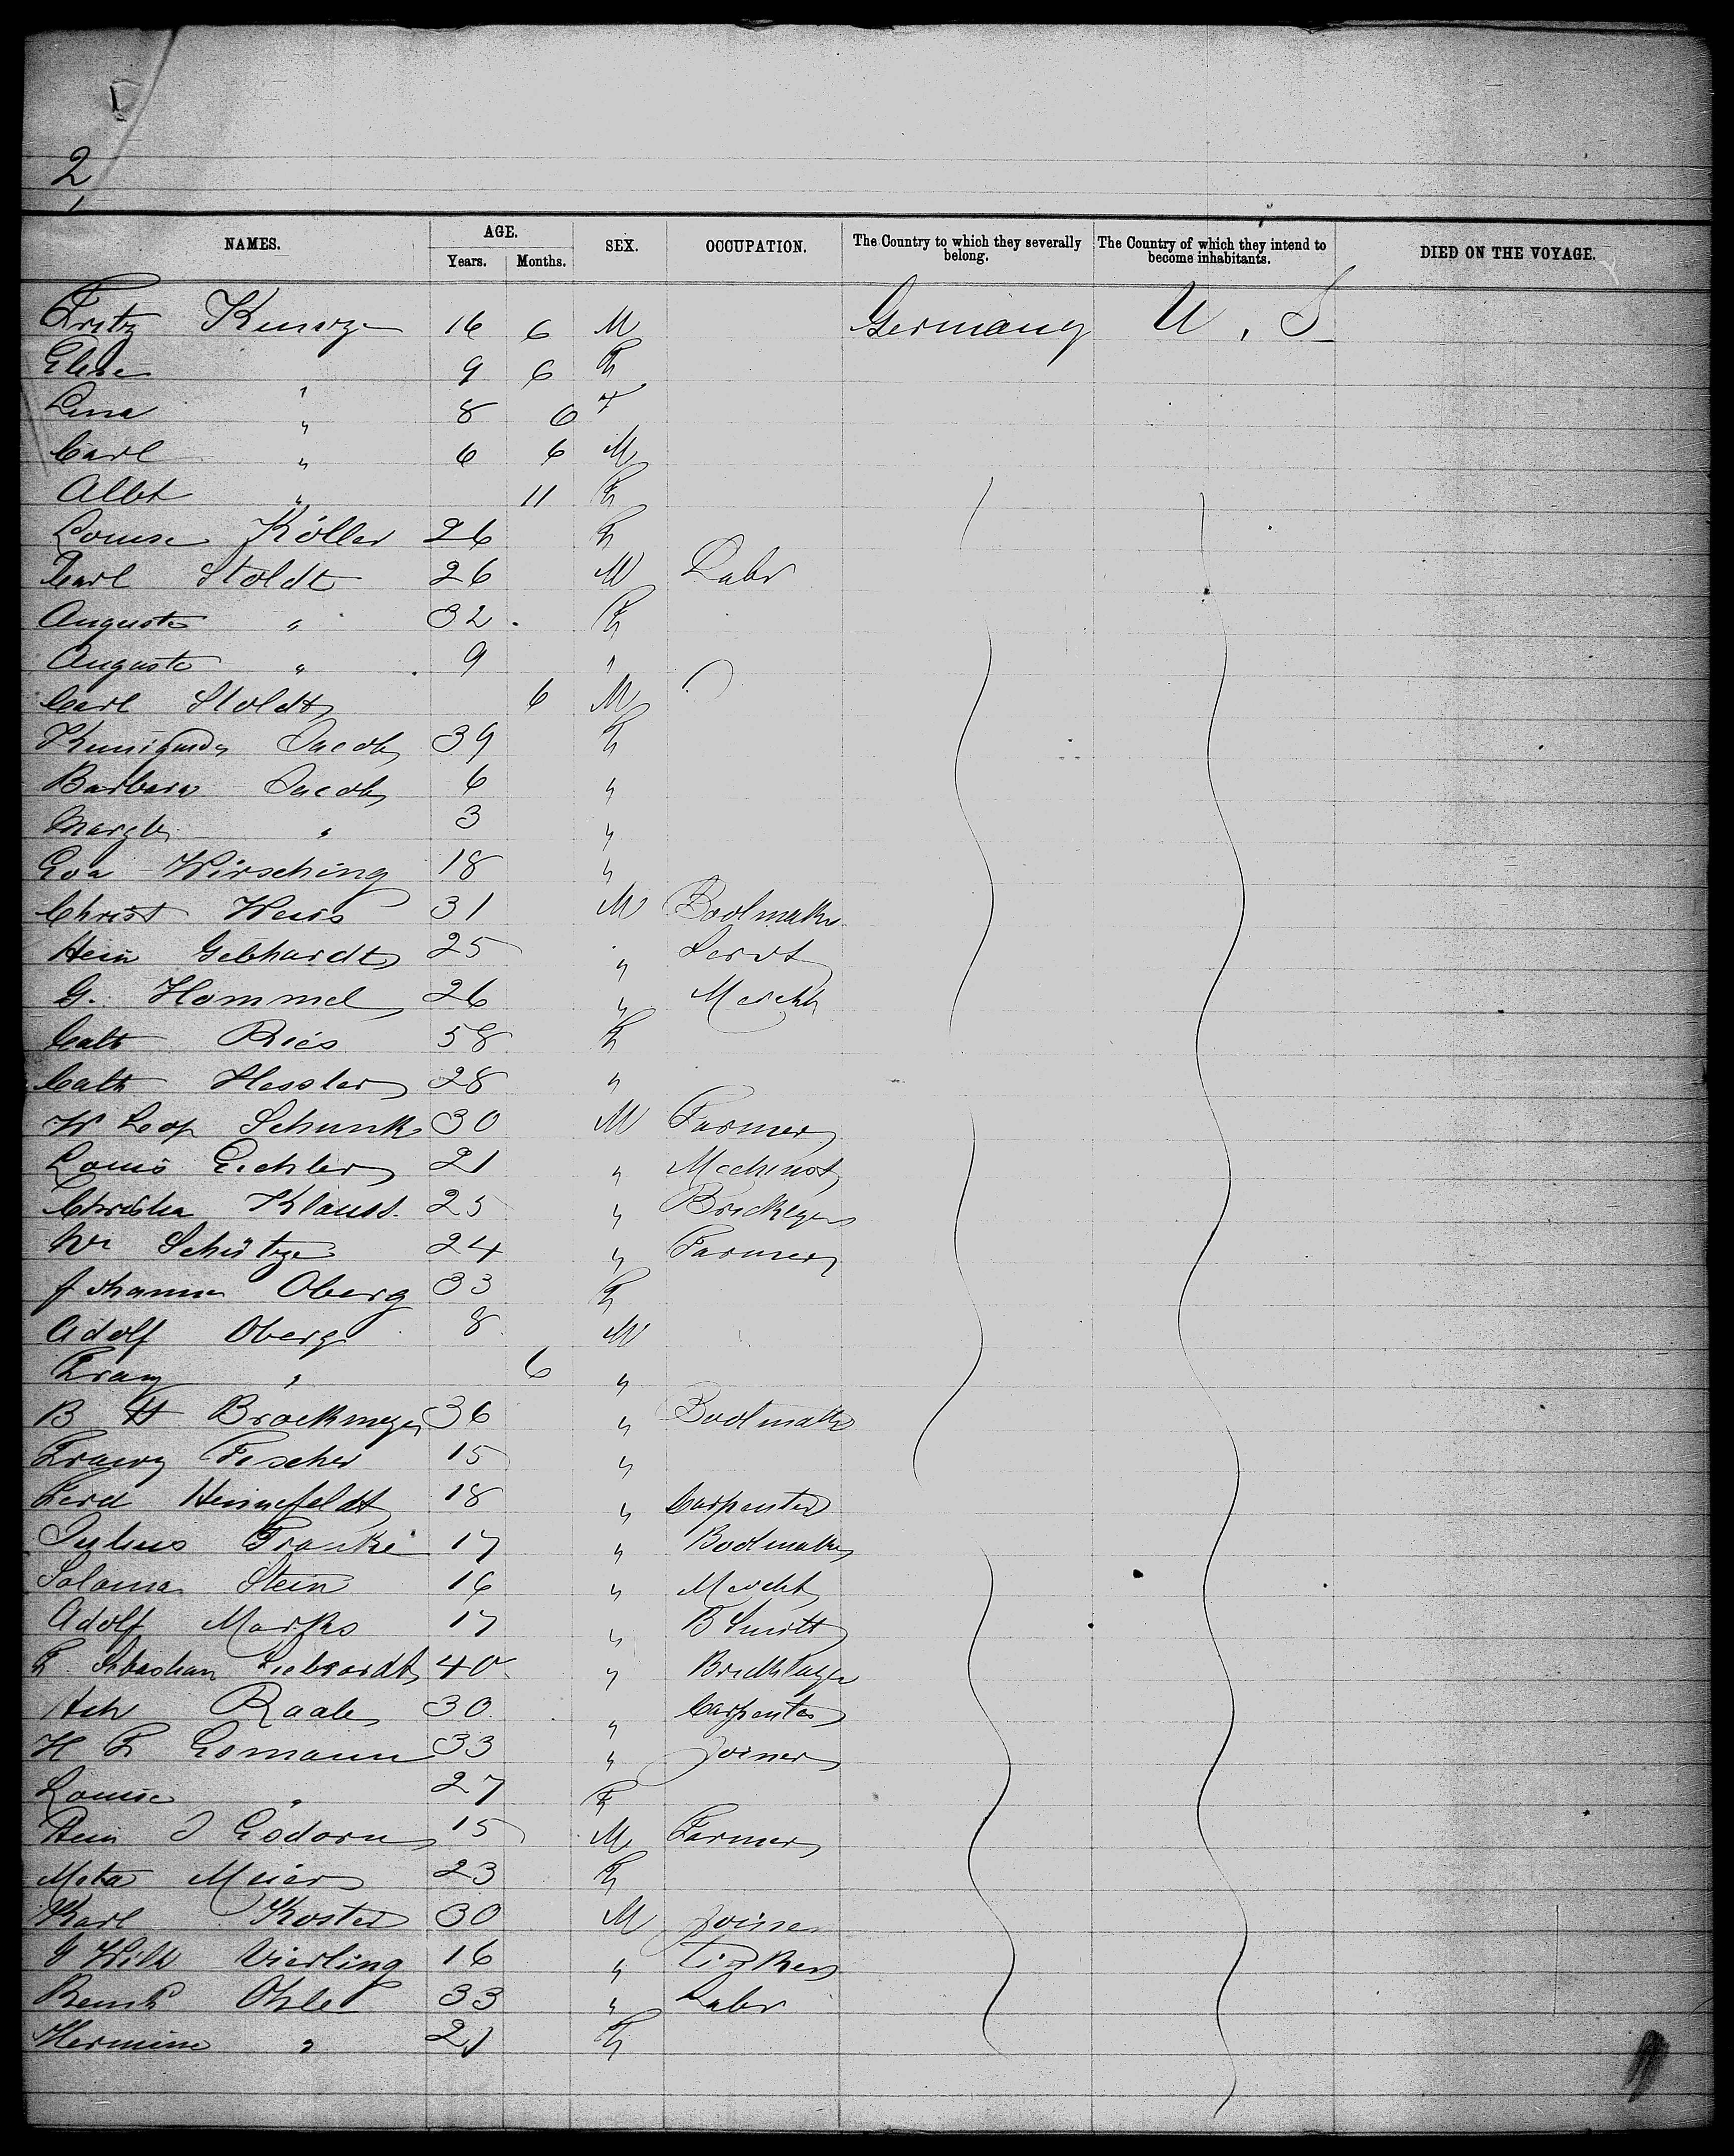 2
NAMES. AGE. SEX. OCCUPATION. The Country to which they severally belong. The Country of which they intend to become inhabitants. DIED ON THE VOYAGE.
Years. Months.
Fritz 16 6 M Germany U. S
Elise " 9 6 F
Lina " 8 6 F
Carl " 6 6 M
Albt " 11 F
Louise Köller 26 F
Carl Stoldt 26 M Labr
Auguste " 32 F
Auguste " 9 "
Carl Stoldt 6 M
Jacob 39 F
Barbara Jacob 6 "
Margth " 3 "
Eva Wirsching 18 "
Christ Weiss 31 M Bootmakr
Hein Gebhardt 25 " Servt
G. Hommel 26 " Mercht
Cath Ries 58 F
Cath Hessler 28 "
W Leop Schunk 30 M Farmer
Louis Eichler 21 " Mechinst
Klauss 25 "
Wm Schütze 24 " Farmer
Johanna Oberg 33 F
Adolf Oberg 8 M
Franz " 6 "
B H Brockmeyer 36 " Bootmakr
Franz Fischer 15 "
Ferd Heinefeldt 18 " Carpenter
Julius Franke 17 " Bootmaker
Saloma Stein 16 " Mercht
Adolf Marks 17 " B Smith
F. Sebastian 40 "
Hch Raab 30 " Carpenter
H F Esmann 33 " Joiner
Louise " 27 F
Hein J Esdorn 15 M Farmer
Meta Meier 23 F
Karl Koster 30 M Joiner
G Wilh Vierling 16 " Tinker
Bernh Ohle 33 " Labr
Hermine " 21 F